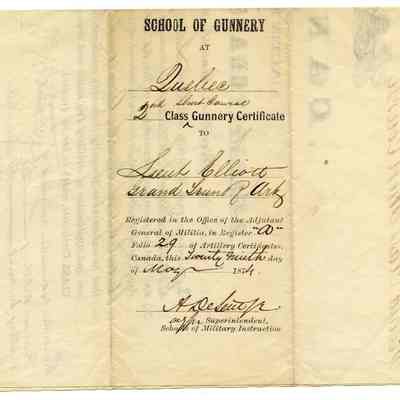 SCHOOL OF GUNNERY
AT
Quebec
2nd Short Course
Class Gunnery Certificate
TO
Lieut Elliott
Grand Trunk R Arty
Registered in the Office of the Adjutant
General of Militia, in Register "A"
Folio 29 of Artillery Certificates,
Canada, this Twenty ninth day
of May 1874.
Superintendent,
Schools of Military Instruction